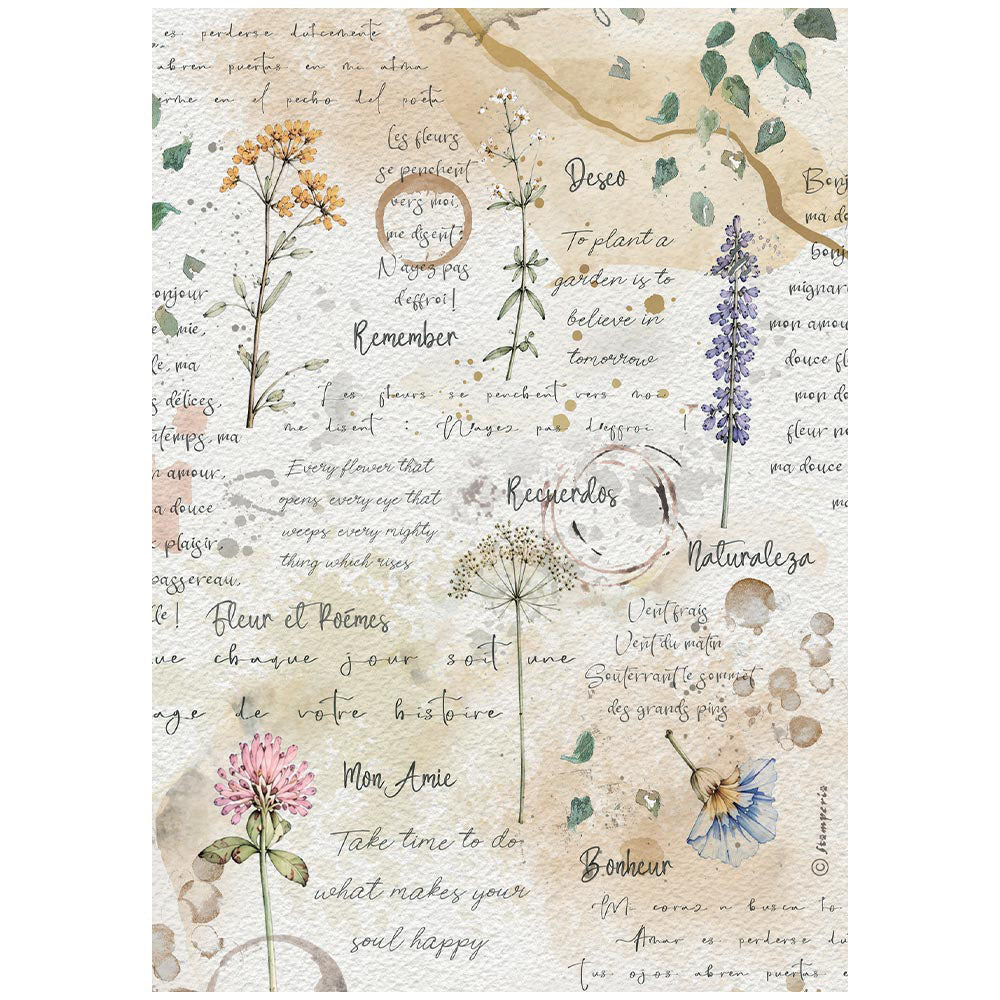 es perderse dulcemente
abren puertas en mi alma
erme en el pecho del poeta
Les fleurs
se penchent
vers moi,
me disent:
N'ayez pas
d'effroi!
Deseo
To plant a
garden is to
believe in
tomorrow
Remember
Les fleurs se penchent vers moi
me disent : N'ayez pas d'effroi !
Bonj
ma do
bonj
mignar
mon amou
douce fl
mon do
fleur n
ma douce
m
onjour
mie,
le, ma
s délices,
ntemps, ma
n amour,
a douce
e plaisir,
passereau,
lle!
Every flower that
opens every eye that
weeps every mighty
thing which rises
Recuerdos
Naturaleza
Fleur et Poémes
ue chaque jour soit une
age de votre histoire
Vent frais
Vent du matin
Souterrant le sommet
des grands pins
Mon Amie
Take time to do
what makes your
soul happy
Bonheur
Mi coraz n busca lo
Amar es perderse du
Tus ojos abren puertas e
© Stamperia